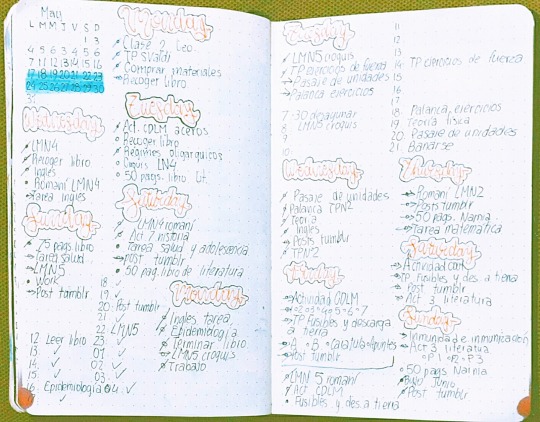 May
L M M J V S D
1 3
4 5 6 7 8 9
17 18 19 20 21 22 23
24 25 26 27 28 29 30
31
Wednesday
LMN4
Recoger libro
Ingles
Romani LMN4
Tarea ingles
Sunday
75 pags libro
Tarea salud
LMN5
Work
Post tumblr
12 Leer libro
13
14
15
16 Epidemiologia
Monday
Clase 2 Leo.
TP Svaldi
Comprar materiales
Recoger libro
Tuesday
Act. CDLM aceros
Recoger libro
Regimes oligarquicos
LN4
50 pags. libro Lit.
Saturday
LMN4 romani
Act 7 historia
Tarea salud y adolescencia
post tumblr
50 pag. libro de literatura
18
19
20 Post tumblr
21
22 LMN5
23
01
02
03
04
Ingles tarea
Epidemiologia
Terminar libro
LMN5 croquis
Trabajo
LMN5 croquis
TP ejercicios de fuerza
Pasaje de unidades
Palanca ejercicios
7:30 desayunar
8 LMN5 croquis
9
10
11
12
13
14 TP ejercicios de fuerza
15
16
17
18 Palanca, ejercicios
19 Teoria fisica
20 Pasaje de unidades
21 Bañarse
Wednesday
Pasaje de unidades
Palanca TPN2
Teoria
Ingles
Posts tumblr
TPN2
Friday
Actividad CDLM
TP Fusibles y descarga
a tierra
Post tumblr
LMN 5 romani
Act CDLM
Fusibles y des. a tierra
Thursday
Romani LMN2
Posts tumblr
50 pags. Narnia
Tarea matematica
Saturday
Actividad CDLM
TP. Fusibles y des. a tierra
Post tumblr
Act 3 literatura
Sunday
Inmunidad e inmunicacion
Act 3 literatura
P1 P2 P3
50 pags Narnia
BuJo Junio
Post tumblr